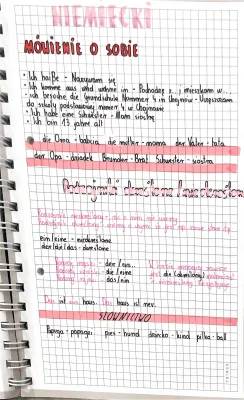 NIEMIECKI
MÓWIENIE O SOBIE
• Ich heiße - Nazywam się
• Ich komme aus und wohne im - Pochodzę z... i mieszkam w...
• ich besuche die Grundschule Nummer 4 in Chojnow - Uczęszczam
do szkoły podstawowej numer 4 w Chojnowie
• Ich habe eine Schwester - Mam siostrę
• Ich bin 13 Jahre alt
die Oma - babcia, die mutter - mama, der Vater - tata
der Opa - dziadek Bruder - Brat Schwester - siostra
Rodzajniki określone / nieokreślone
ein/eine - nieokreślone
der/die/das - określone
Rodzaj męski - der / ein
Rodzaj żeński - die / eine
Rodzaj nijaki - das / ein
Das ist ein haus. Das haus ist
SŁOWNICTWO
Papuga - papagei pies - hund dziecko - kind piłka - ball